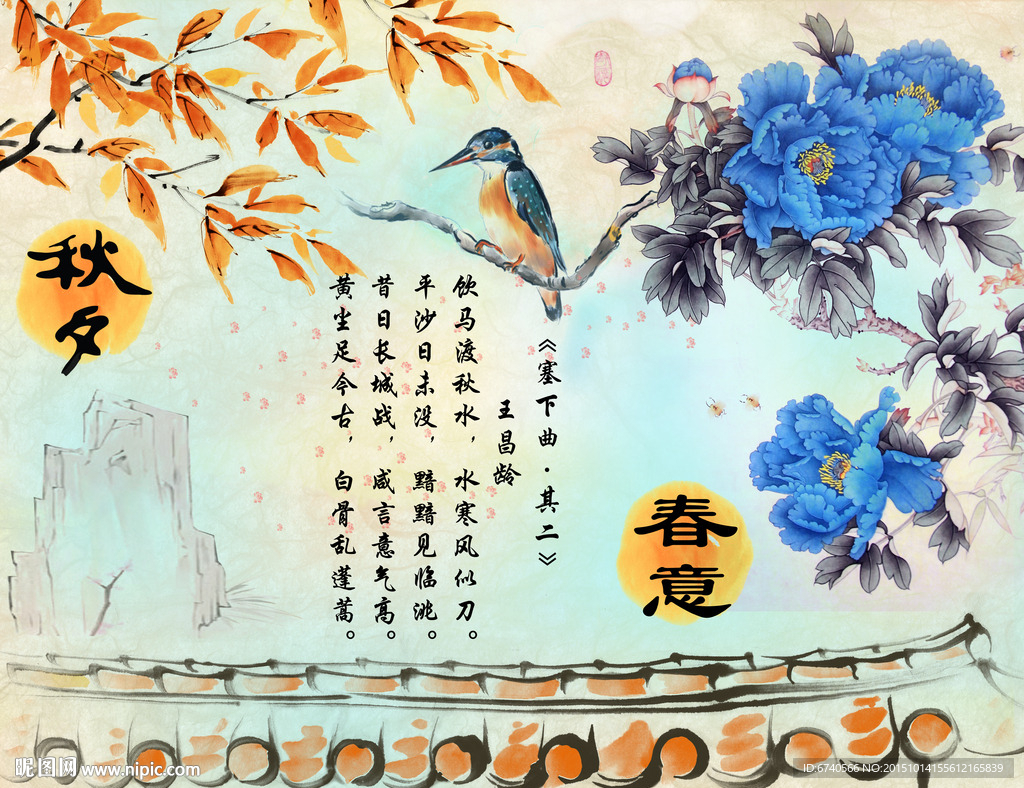 秋夕
《塞下曲·其二》
王昌龄
饮马渡秋水，水寒风似刀。
平沙日未没，黯黯见临洮。
昔日长城战，咸言意气高。
黄尘足今古，白骨乱蓬蒿。
春意
昵图网 www.nipic.com
ID:6740566 NO:20151014155612165839